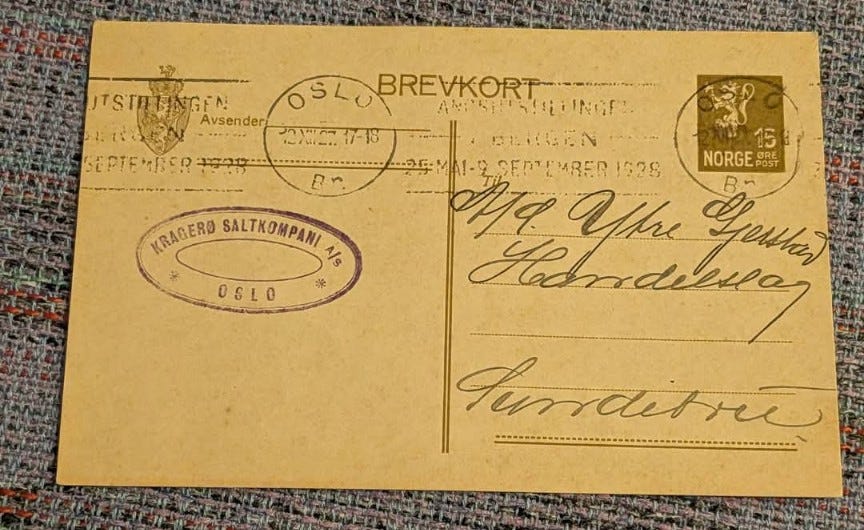 BREVKORT
UTSTILLINGEN
BERGEN
SEPTEMBER 1928
Avsender
OSLO
2 XII 27. 17-18
Br.
BERGEN
25 MAI-9 SEPTEMBER 1928
OSLO
Br.
15
NORGE ØRE
POST
Til
KRAGERØ SALTKOMPANI A/S
* OSLO *
A/l. Ytre Gjerstad
Handelslag
Sundebru